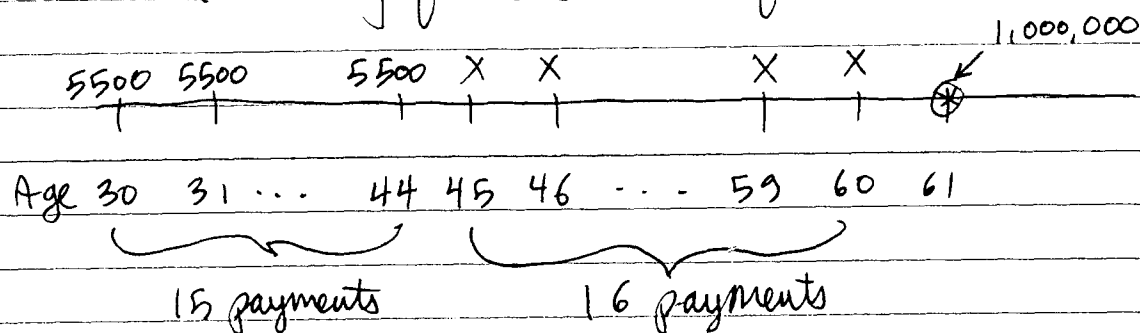 1,000,000
5500 5500 5500 X X X X
Age 30 31 ... 44 45 46 .... 59 60 61
15 payments 16 payments